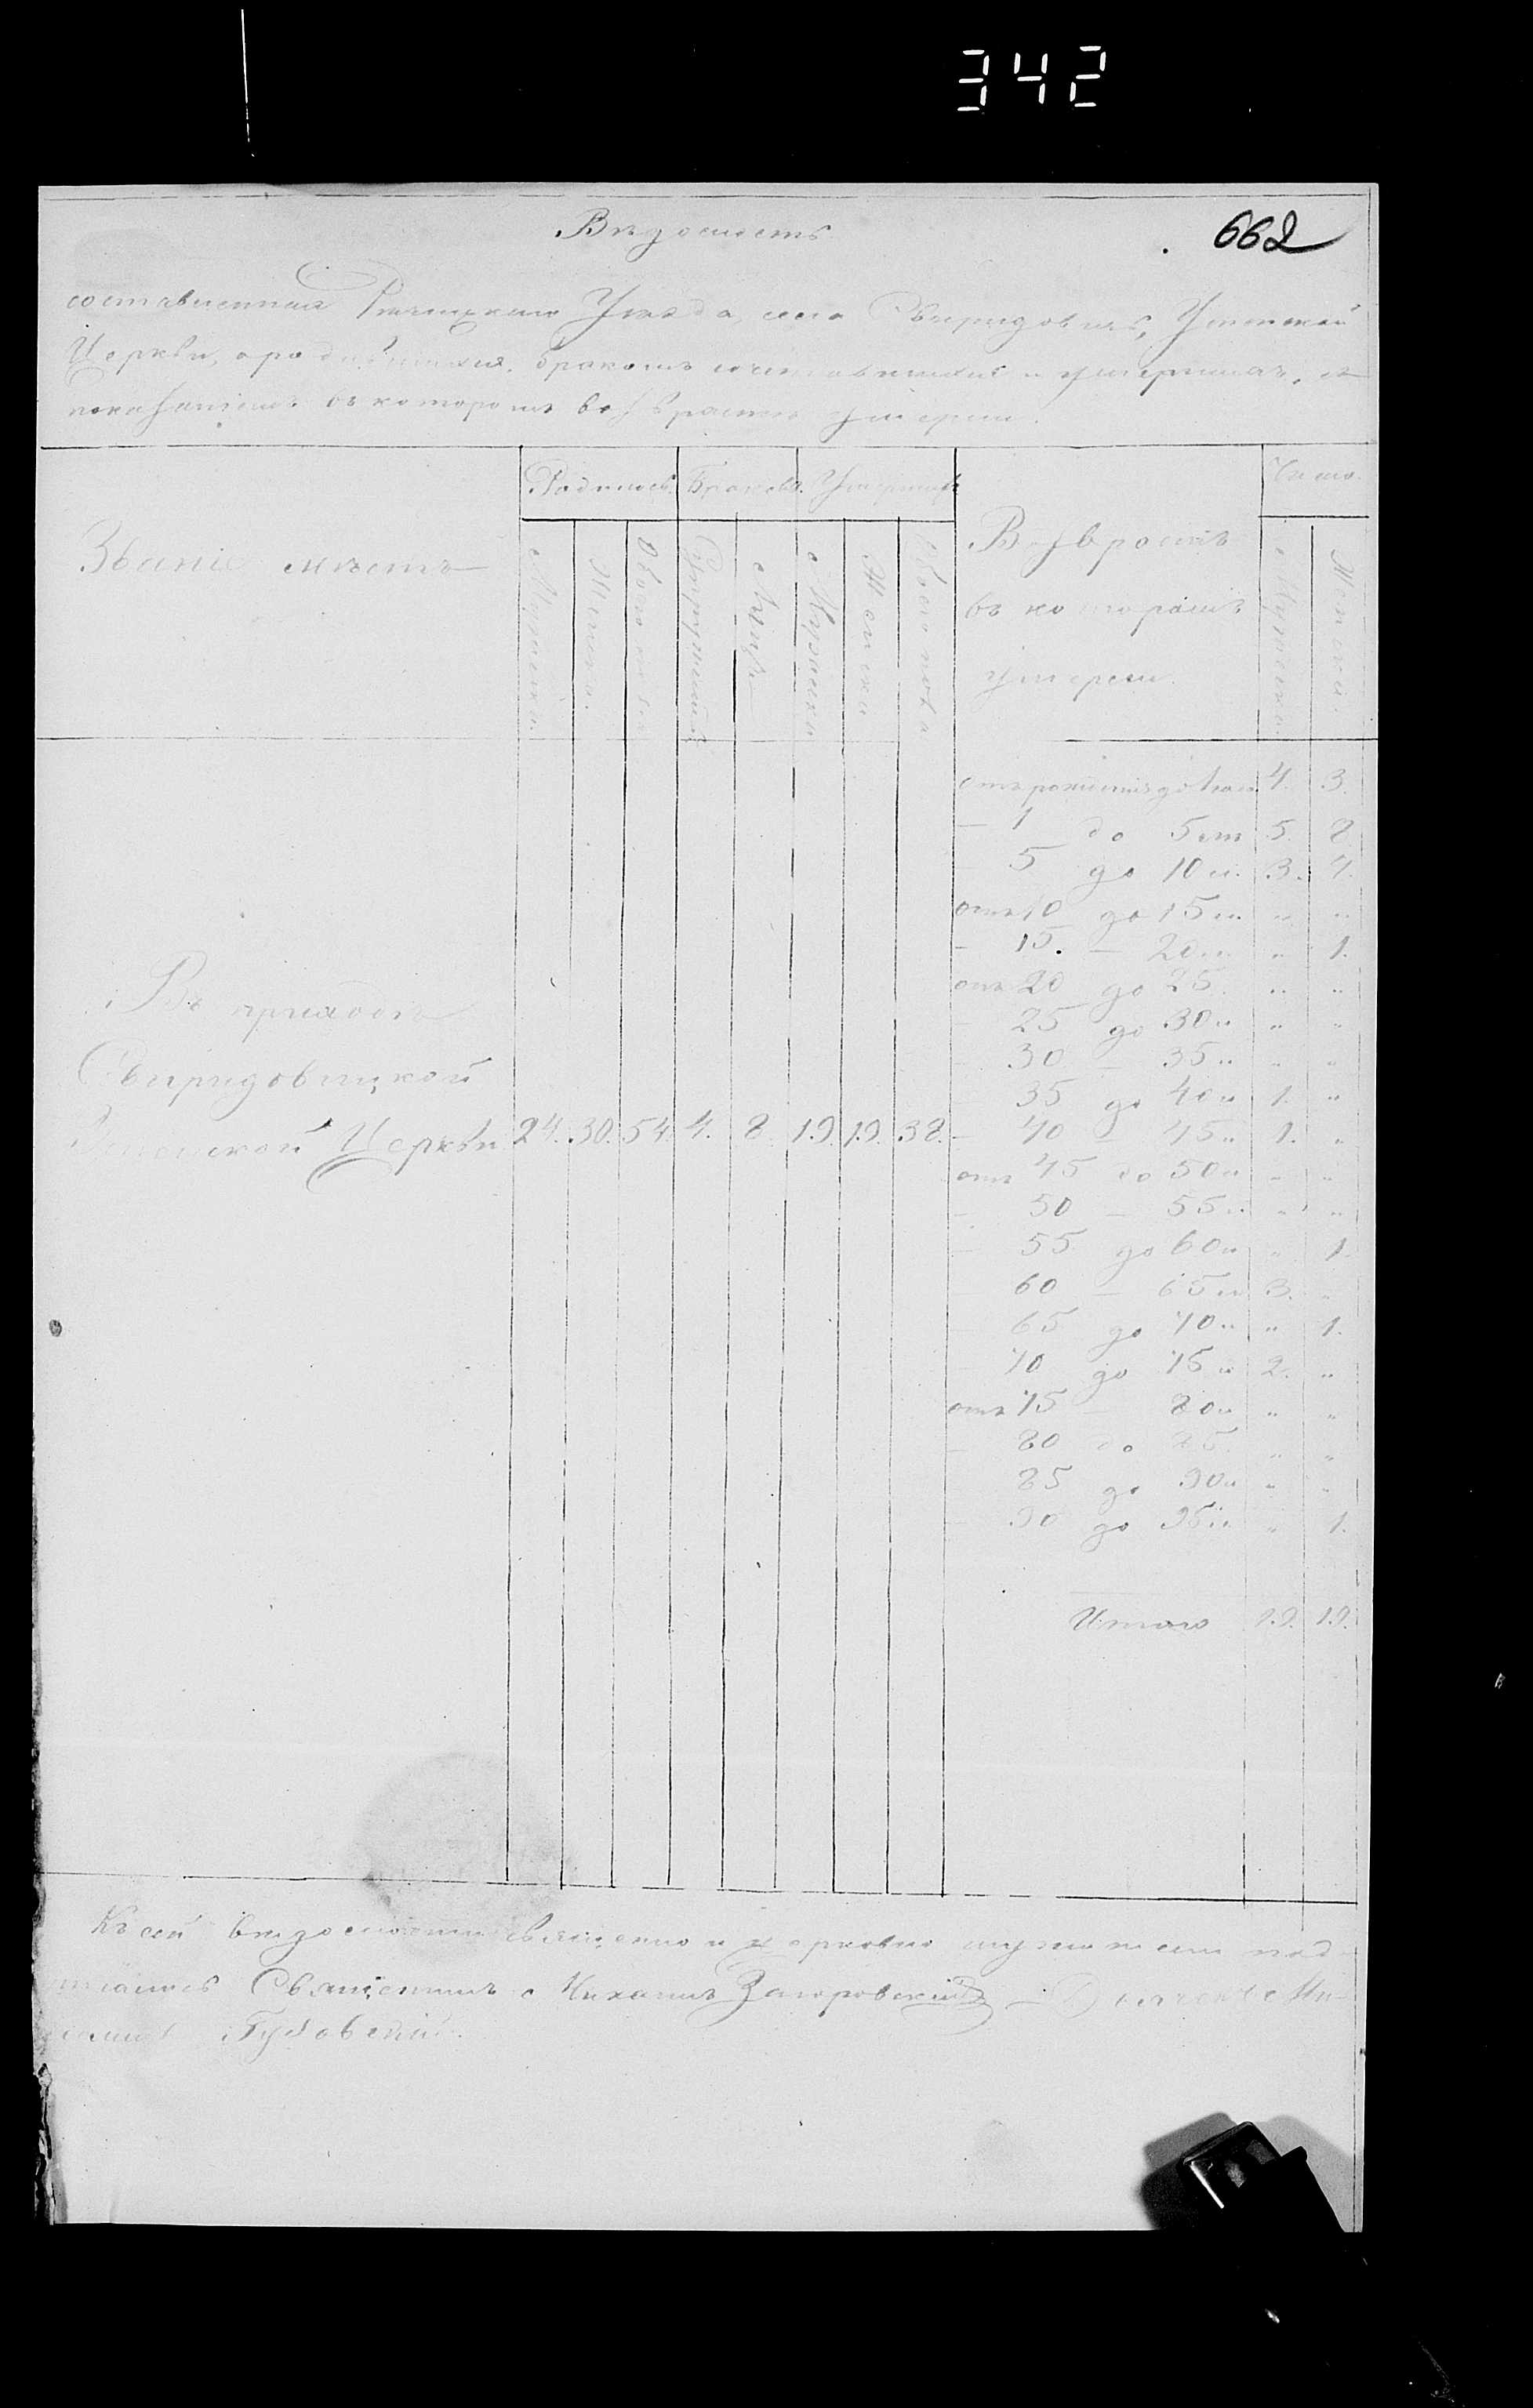 342
662
Вѣдомость
составленная Речицкаго Уѣзда, села Свиридовичъ, Успенской
Церкви, о родившихся, бракомъ сочетавшихся и умершихъ, съ
показаніемъ въ которомъ возврастѣ умерли.
Званіе мѣстъ
Родилось. Браковъ. Умершихъ
Мужеска. Женска. Обоего пола Супружествъ Лицъ Мужеска Женска Обоего пола
Возврастъ
въ которомъ
умерли.
Число.
Мужеска. Женска.
отъ рожденія до 1 4. 3.
— 1 до 5 лѣт 5. 8
5 до 10 л. 3. 4.
отъ 10 до 15 л. „ „
— 15. — 20 л. „ 1.
отъ 20 до 25. „ „
— 25 до 30 л. „ „
— 30 — 35 л. „ „
35 до 40 л. 1. „
Въ приходѣ
Свиридовицкой
Успенской Церкви 24. 30. 54. 4. 8. 19. 19. 38.
— 40 — 45 л. 1. „
отъ 45 до 50 л. „ „
— 50 — 55 л. „ „
— 55 до 60 л. „ 1.
60 — 65 л. 3. „
65 до 70 л. „ 1.
70 до 75 л. 2. „
отъ 75 — 80 л. „ „
— 80 до 85. „ „
85 до 90 л. „ „
90 до 95 л. „ 1.
Итого 19. 19.
Къ сей вѣдомости священно и церковно служители под-
писались Священникъ Михаилъ Загоровскій
Гузовскій.